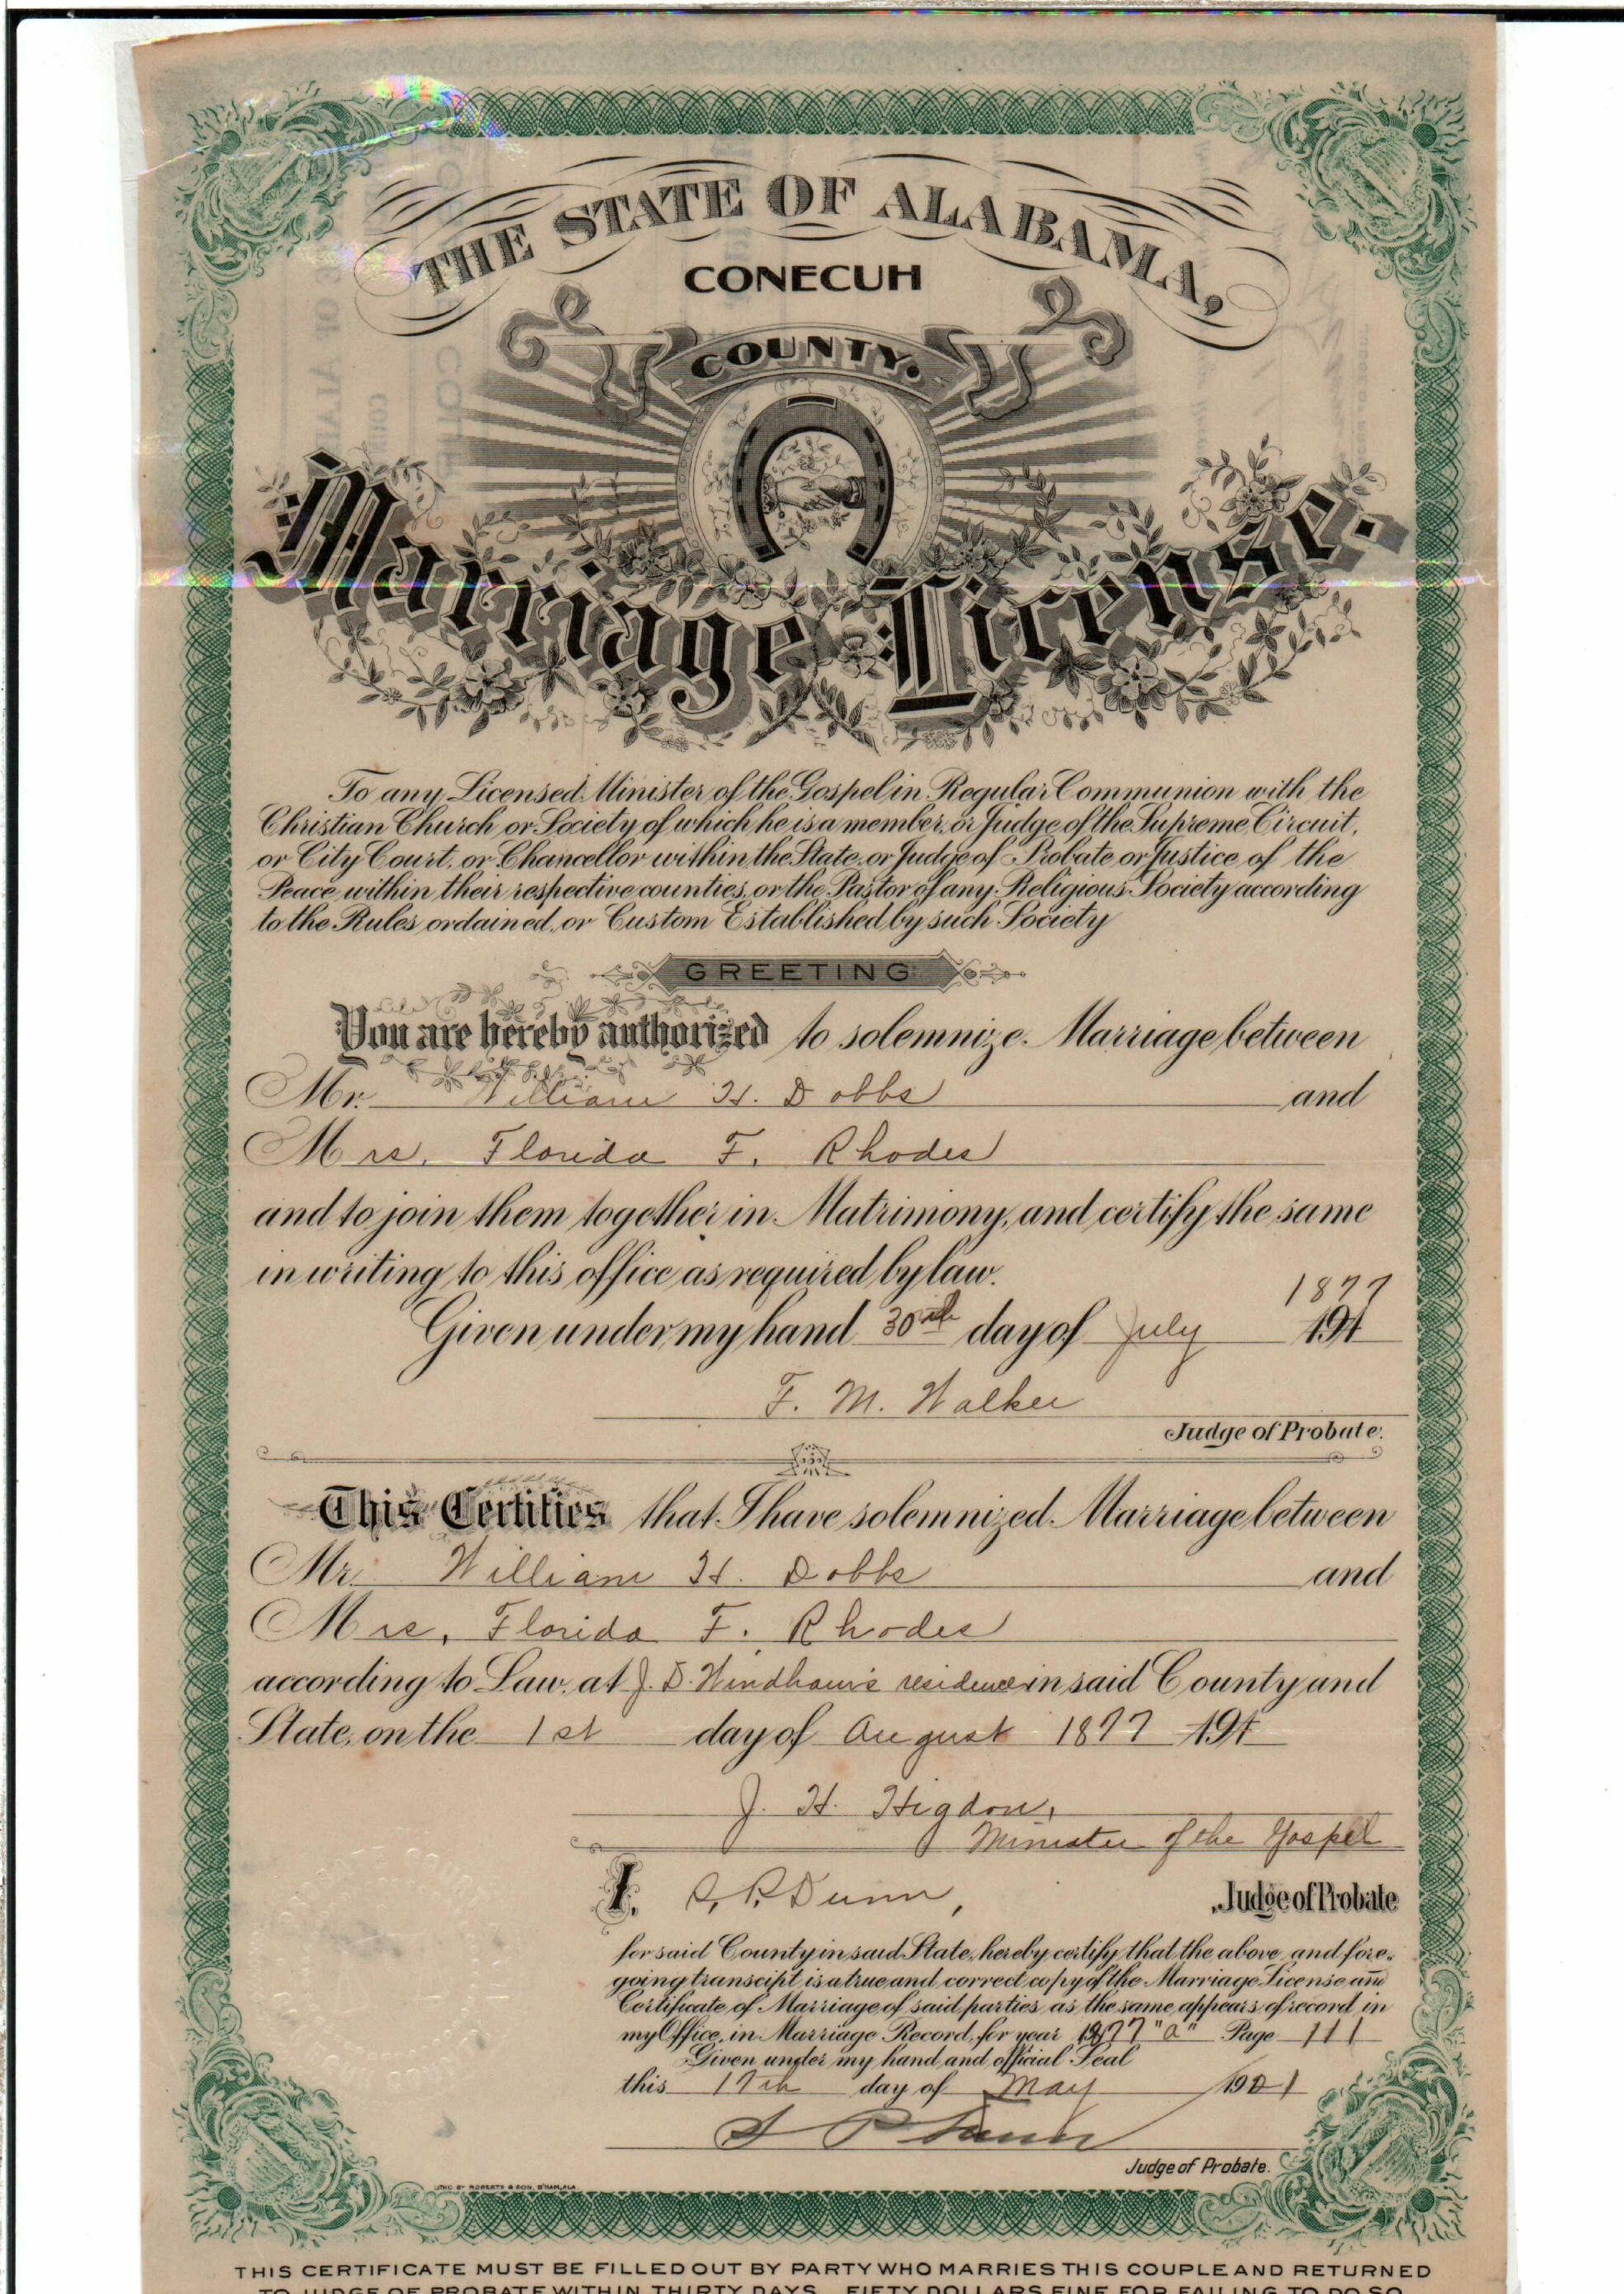 THE STATE OF ALABAMA,
CONECUH
COUNTY.
Marriage License.
To any Licensed Minister of the Gospel in Regular Communion with the
Christian Church or Society of which he is a member, or Judge of the Supreme, Circuit,
or City Court, or Chancellor within the State, or Judge of Probate or Justice of the
Peace within their respective counties, or the Pastor of any Religious Society according
to the Rules ordained, or Custom Established by such Society
GREETING
You are hereby authorized to solemnize Marriage between
Mr. William H. Dobbs and
Mrs. Florida F. Rhodes
and to join them together in Matrimony, and certify the same
in writing to this office as required by law.
1877
Given under my hand 30th day of July 191
F. M. Walker
Judge of Probate.
This Certifies that I have solemnized Marriage between
Mr. William H. Dobbs and
Mrs, Florida F. Rhodes
according to Law, at J. D. Windham's residence in said County and
State, on the 1st day of August 1877 191
J. H. Higdon,
Minister of the Gospel
I, S. P. Dunn, Judge of Probate
for said County in said State, hereby certify, that the above and fore-
going transcipt is a true and correct copy of the Marriage License and
Certificate of Marriage of said parties as the same appears of record in
my Office, in Marriage Record, for year 1877 "a" Page 111
Given under my hand and official Seal
this 17th day of May 1921
S P Dunn
Judge of Probate.
LITHO BY ROBERTS & SON, B'HAM, ALA.
THIS CERTIFICATE MUST BE FILLED OUT BY PARTY WHO MARRIES THIS COUPLE AND RETURNED
TO JUDGE OF PROBATE WITHIN THIRTY DAYS. FIFTY DOLLARS FINE FOR FAILING TO DO SO